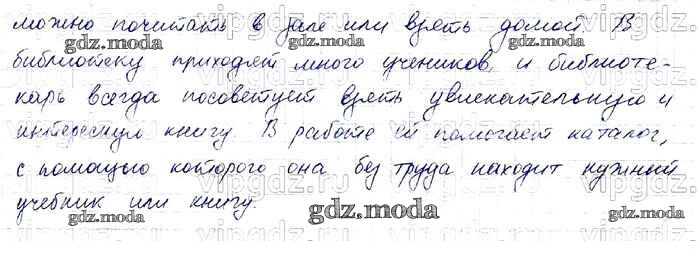 можно почитать в зале или взять домой. В
библиотеку приходят много учеников, и библиоте-
карь всегда посоветует взять увлекательную и
интересную книгу. В работе ей помогает каталог,
с помощью которого она без труда находит нужный
учебник или книгу.
gdz.moda
gdz.moda
gdz.moda
gdz.moda
gdz.moda
gdz.moda
gdz.moda
gdz.moda
gdz.moda